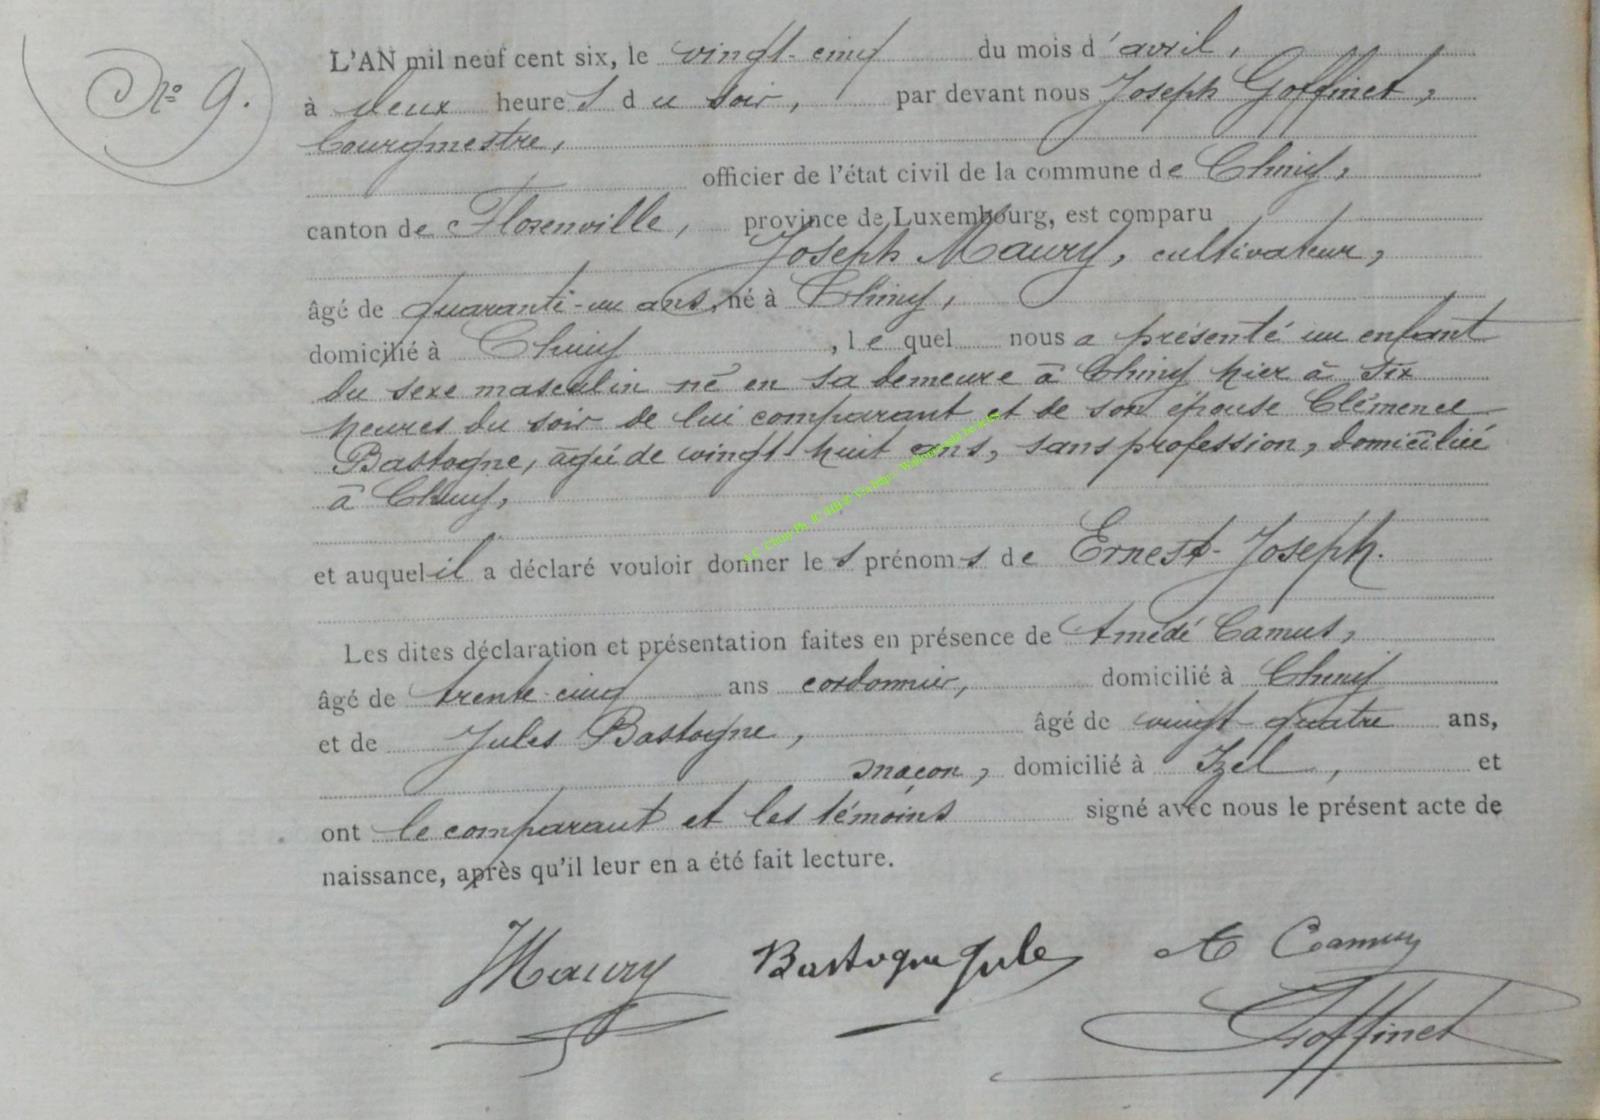 N° 9.
L'AN mil neuf cent six, le vingt-cinq du mois d'avril,
à deux heures du soir, par devant nous Joseph Goffinet,
bourgmestre,
officier de l'état civil de la commune de Chiny,
canton de Florenville, province de Luxembourg, est comparu
Joseph Maury, cultivateur,
âgé de quarante-un ans, né à Chiny,
domicilié à Chiny, lequel nous a présenté un enfant
du sexe masculin né en sa demeure à Chiny hier à six
heures du soir de lui comparant et de son épouse Clémence
Bastogne, agée de vingt-huit ans, sans profession, domiciliée
à Chiny,
et auquel il a déclaré vouloir donner les prénoms de Ernest-Joseph.
Les dites déclaration et présentation faites en présence de Amédé Camus,
âgé de trente-cinq ans cordonnier, domicilié à Chiny
et de Jules Bastogne, âgé de vingt-quatre ans,
maçon, domicilié à Izel, et
ont le comparant et les témoins signé avec nous le présent acte de
naissance, après qu'il leur en a été fait lecture.
JMaury Bastogne Jules A Camus
Goffinet